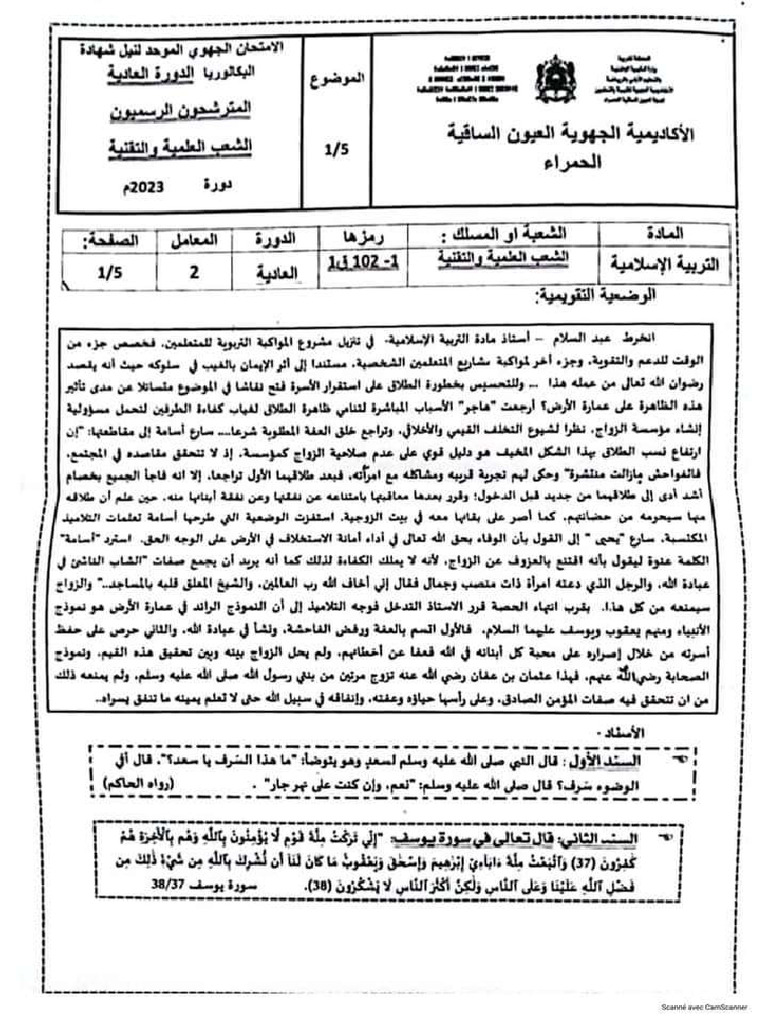 الامتحان الجهوي الموحد لنيل شهادة
البكالوريا الدورة العادية
المترشحون الرسميون
الشعب العلمية والتقنية
دورة 2023م
الموضوع
1/5
المملكة المغربية
الأكاديمية الجهوية العيون الساقية
الحمراء
المادة الشعبة او المسلك : رمزها الدورة المعامل الصفحة:
التربية الإسلامية الشعب العلمية والتقنية 1- 102 ق1 العادية 2 1/5
الوضعية التقويمية:
انخرط عبد السلام – أستاذ مادة التربية الإسلامية- في تنزيل مشروع المواكبة التربوية للمتعلمين، فخصص جزء من
الوقت للدعم والتقوية، وجزء آخر لمواكبة مشاريع المتعلمين الشخصية، مستندا إلى أثر الإيمان بالغيب في سلوكه حيث أنه يقصد
رضوان الله تعالى من عمله هذا ... وللتحسيس بخطورة الطلاق على استقرار الأسرة فتح نقاشا في الموضوع متسائلا عن مدى تأثير
هذه الظاهرة على عمارة الأرض؟ أرجعت "هاجر" الأسباب المباشرة لتنامي ظاهرة الطلاق لغياب كفاءة الطرفين لتحمل مسؤولية
إنشاء مؤسسة الزواج، نظرا لشيوع التخلف القيمي والأخلاقي، وتراجع خلق العفة المطلوبة شرعا.... سارع أسامة إلى مقاطعتها: "إن
ارتفاع نسب الطلاق بهذا الشكل المخيف هو دليل قوي على عدم صلاحية الزواج كمؤسسة، إذ لا تتحقق مقاصده في المجتمع،
فالفواحش مازالت منتشرة" وحكى لهم تجربة قريبه ومشاكله مع امرأته، فبعد طلاقهما الأول تراجعا، إلا انه فاجأ الجميع بخصام
أشد أدى إلى طلاقهما من جديد قبل الدخول؛ وقرر بعدها معاقبتها بامتناعه عن نفقتها وعن نفقة أبنائها منه، حين علم أن طلاقه
منها سيحرمه من حضانتهم، كما أصر على بقائها معه في بيت الزوجية. استفزت الوضعية التي طرحها أسامة تعلمات التلاميذ
المكتسبة، سارع "يحيى" إلى القول بأن الوفاء بحق الله تعالى في أداء أمانة الاستخلاف في الأرض على الوجه الحق. استرد "أسامة"
الكلمة عنوة ليقول بأنه اقتنع بالعزوف عن الزواج، لأنه لا يملك الكفاءة لذلك كما أنه يريد أن يجمع صفات "الشاب الناشئ في
عبادة الله، والرجل الذي دعته امرأة ذات منصب وجمال فقال إني أخاف الله رب العالمين، والشيخ المعلق قلبه بالمساجد.." والزواج
سيمنعه من كل هذا. بقرب انتهاء الحصة قرر الاستاذ التدخل فوجه التلاميذ إلى أن النموذج الرائد في عمارة الأرض هو نموذج
الأنبياء ومنهم يعقوب ويوسف عليهما السلام. فالأول اتسم بالعفة ورفض الفاحشة، ونشأ في عبادة الله، والثاني حرص على حفظ
أسرته من خلال إصراره على محبة كل أبنائه في الله فعفا عن أخطائهم، ولم يحل الزواج بينه وبين تحقيق هذه القيم، ونموذج
الصحابة رضي الله عنهم، فهذا عثمان بن عفان رضي الله عنه تزوج مرتين من بنتي رسول الله صلى الله عليه وسلم، ولم يمنعه ذلك
من ان تتحقق فيه صفات المؤمن الصادق، وعلى رأسها حياؤه وعفته، وإنفاقه في سبيل الله حتى لا تعلم يمينه ما تنفق يسراه..
الأسناد-
السند الأول: قال النبي صلى الله عليه وسلم لسعد وهو يتوضأ: "ما هذا السرف يا سعد؟". قال أفي
الوضوء سرف؟ قال صلى الله عليه وسلم: "نعم، وإن كنت على نهر جار" . (رواه الحاكم)
السند الثاني: قال تعالى في سورة يوسف: "إِنِّي تَرَكْتُ مِلَّةَ قَوْمٍ لَا يُؤْمِنُونَ بِاللَّهِ وَهُم بِالْآخِرَةِ هُمْ
كَٰفِرُونَ (37) وَاتَّبَعْتُ مِلَّةَ ءَابَآءِيَ إِبْرَٰهِيمَ وَإِسْحَٰقَ وَيَعْقُوبَ مَا كَانَ لَنَا أَن نُّشْرِكَ بِاللَّهِ مِن شَيْءٍ ذَٰلِكَ مِن
فَضْلِ اللَّهِ عَلَيْنَا وَعَلَى النَّاسِ وَلَٰكِنَّ أَكْثَرَ النَّاسِ لَا يَشْكُرُونَ (38). سورة يوسف 38/37
Scanné avec CamScanner